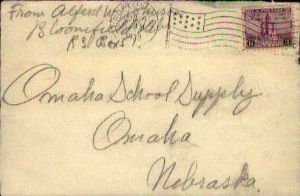 From Alfred
Bloomfield
Omaha School Supply
Omaha
Nebraska.